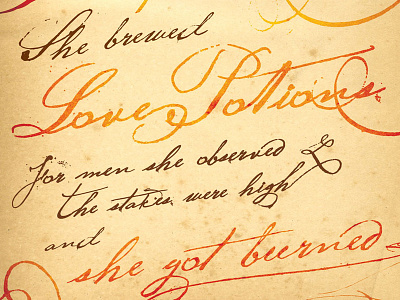 She brewed
Love Potions
For men she observed &
the stakes were high
and
she got burned